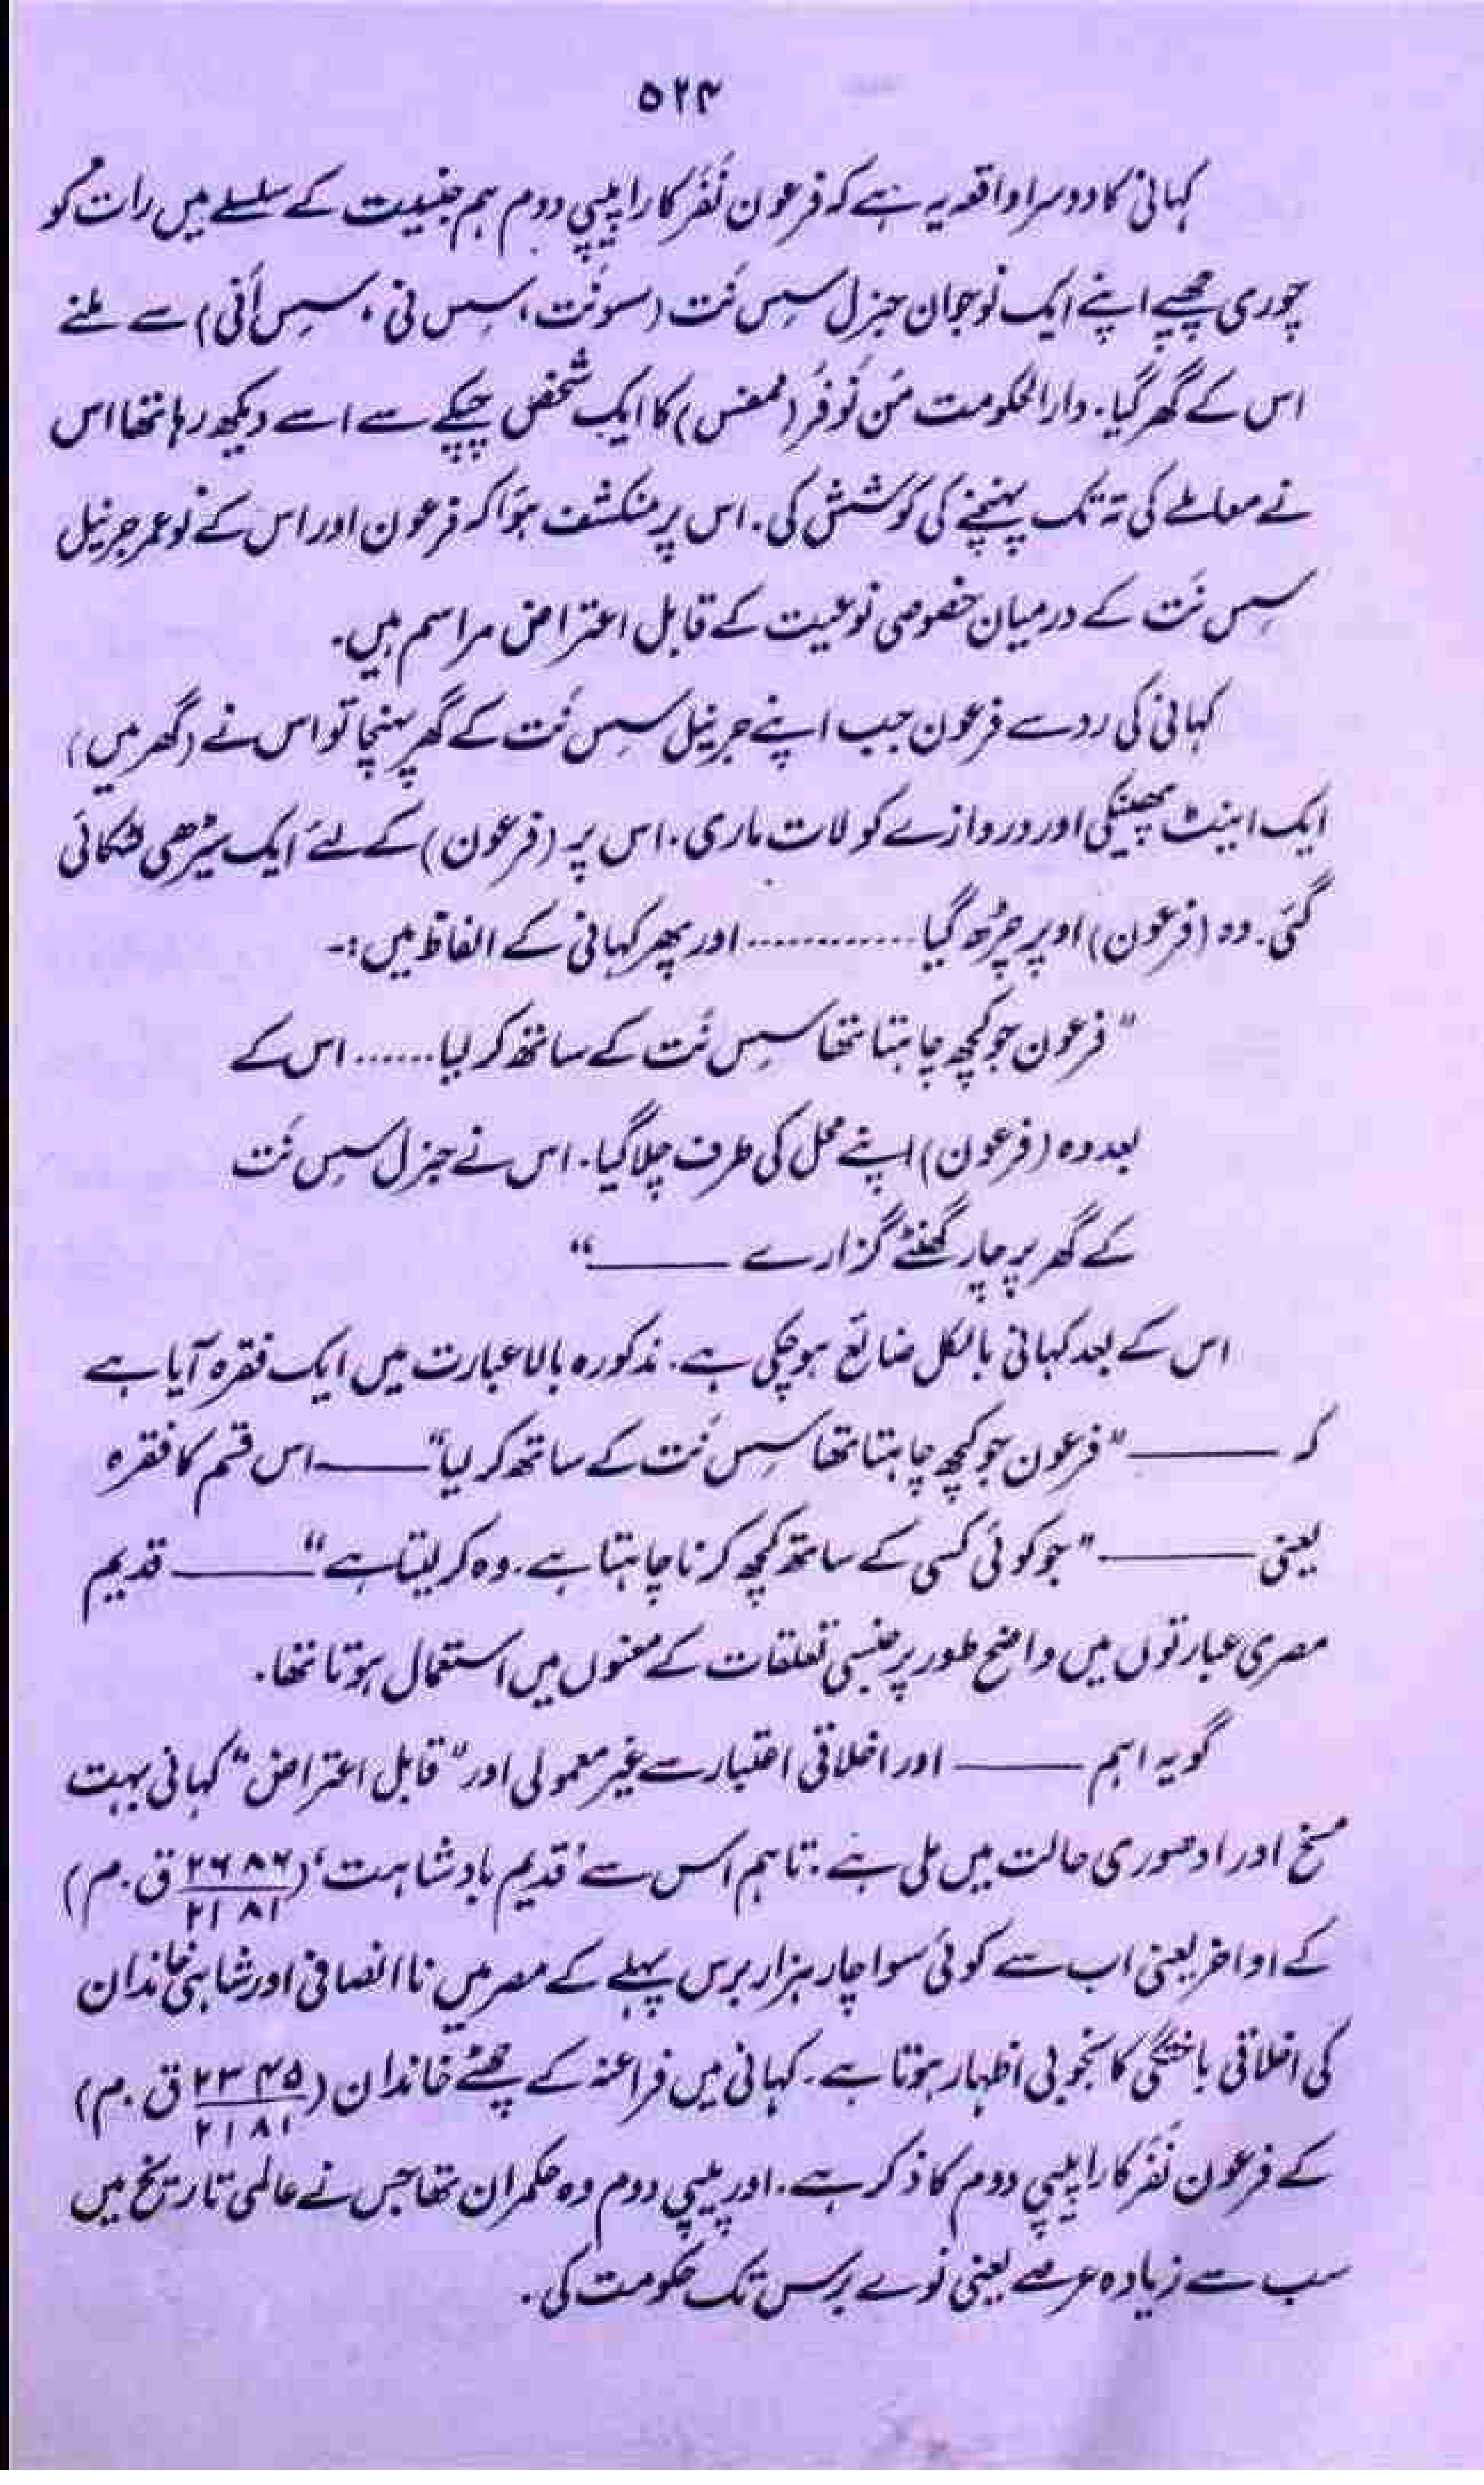 ۵۲۴
کہانی کا دوسرا واقعہ یہ ہے کہ فرعون نَفَر کا را پیپی دوم ہم جنسیت کے سلسلے میں رات کو
چوری چھپے اپنے ایک نوجوان جنرل سِس نَت (سونَت، سِس نی، سِس اَنی) سے ملنے
اس کے گھر گیا۔ دارالحکومت مَن نَوفَر (ممفس) کا ایک شخص چپکے سے اسے دیکھ رہا تھا اس
نے معاملے کی تہ تک پہنچنے کی کوشش کی۔ اس پر منکشف ہوا کہ فرعون اور اس کے نوعمر جرنیل
سِس نَت کے درمیان خصوصی نوعیت کے قابل اعتراض مراسم ہیں۔
کہانی کی رو سے فرعون جب اپنے جرنیل سِس نَت کے گھر پہنچا تو اس نے (گھر میں)
ایک اینٹ پھینکی اور دروازے کو لات ماری۔ اس پر (فرعون) کے لئے ایک سیڑھی لٹکائی
گئی۔ وہ (فرعون) اوپر چڑھ گیا ............ اور پھر کہانی کے الفاظ میں:۔
"فرعون جو کچھ چاہتا تھا سِس نَت کے ساتھ کر لیا ...... اس کے
بعد وہ (فرعون) اپنے محل کی طرف چلا گیا۔ اس نے جنرل سِس نَت
کے گھر پر چار گھنٹے گزارے ـــــــ"
اس کے بعد کہانی بالکل ضائع ہو چکی ہے۔ مذکورہ بالا عبارت میں ایک فقرہ آیا ہے
کہ ـــــــ "فرعون جو کچھ چاہتا تھا سِس نَت کے ساتھ کر لیا" ـــــــ اس قسم کا فقرہ
یعنی ـــــــ "جو کوئی کسی کے ساتھ کچھ کرنا چاہتا ہے۔ وہ کر لیتا ہے" ـــــــ قدیم
مصری عبارتوں میں واضح طور پر جنسی تعلقات کے معنوں میں استعمال ہوتا تھا۔
گو یہ اہم ـــــــ اور اخلاقی اعتبار سے غیر معمولی اور "قابل اعتراض" کہانی بہت
مسخ اور ادھوری حالت میں ملی ہے۔ تاہم اس سے 'قدیم بادشاہت' (۲۶۸۶/۲۱۸۱ ق.م)
کے اواخر یعنی اب سے کوئی سوا چار ہزار برس پہلے کے مصر میں ناانصافی اور شاہی خاندان
کی اخلاقی باختگی کا بخوبی اظہار ہوتا ہے۔ کہانی میں فراعنہ کے چھٹے خاندان (۲۳۴۵/۲۱۸۱ ق.م)
کے فرعون نَفَر کا را پیپی دوم کا ذکر ہے۔ اور پیپی دوم وہ حکمران تھا جس نے عالمی تاریخ میں
سب سے زیادہ عرصے یعنی نوے برس تک حکومت کی۔